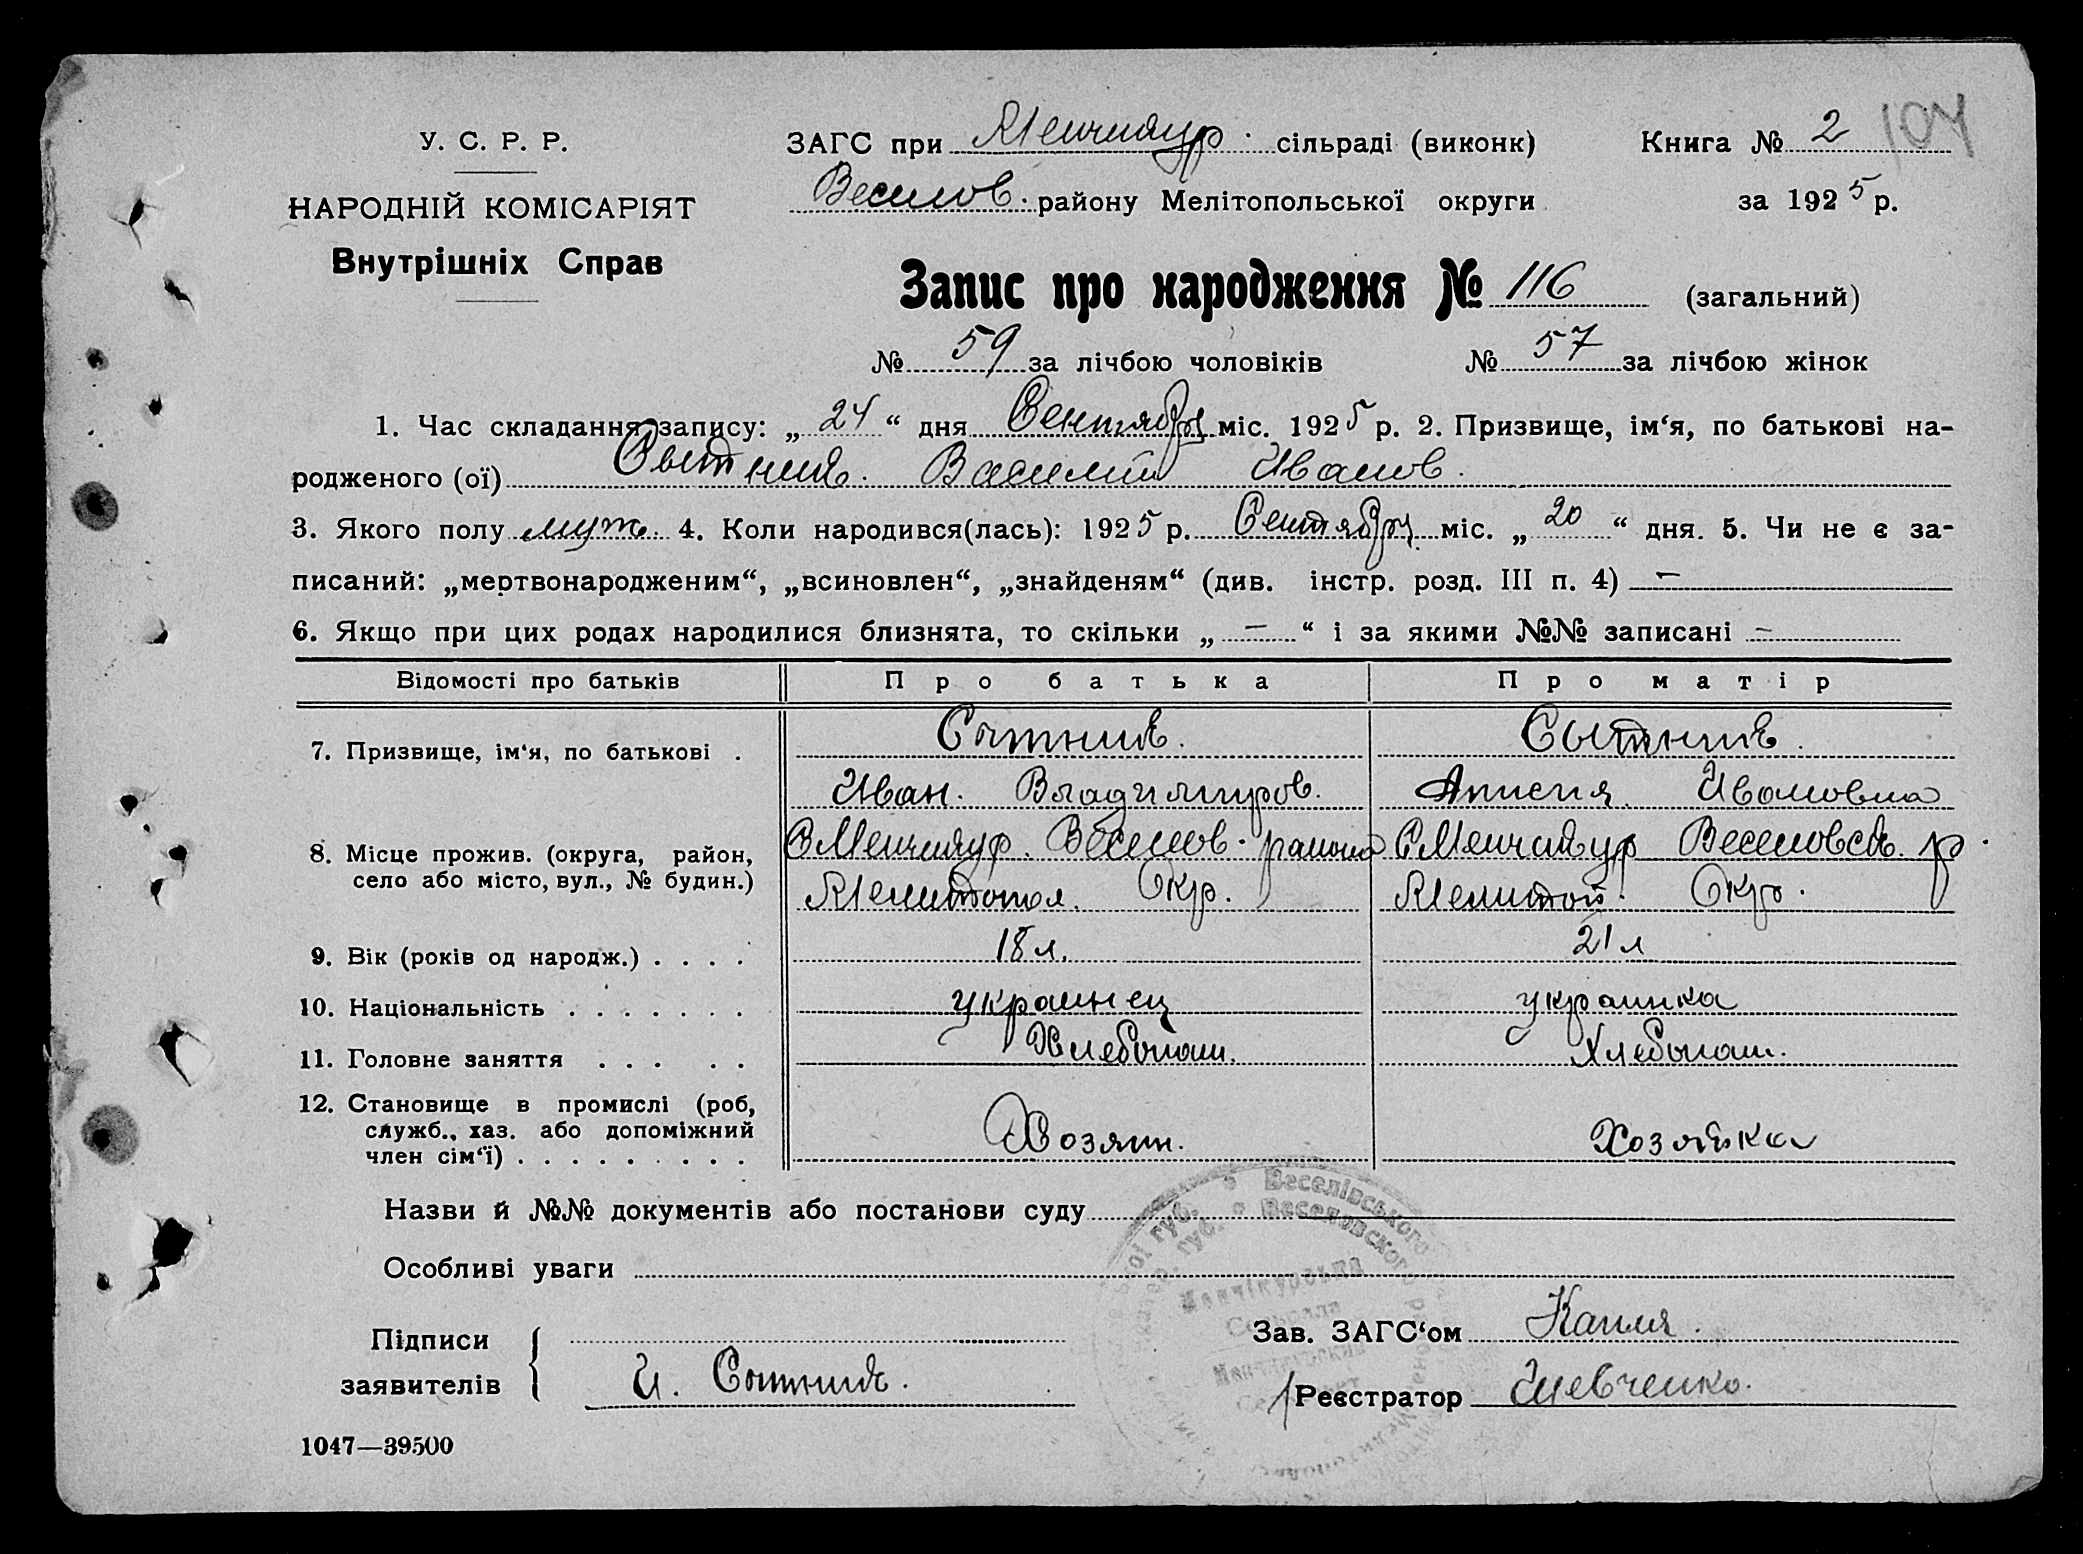 У. С. Р. Р.
НАРОДНІЙ КОМІСАРІЯТ
Внутрішніх Справ
ЗАГС при Менчикур. сільраді (виконк)
Книга № 2
107
Веселов. району Мелітопольської округи
за 1925 р.
Запис про народження № 116 (загальний)
№ 59 за лічбою чоловіків № 57 за лічбою жінок
1. Час складання запису: „24“ дня Сентября міс. 1925 р. 2. Призвище, ім‘я, по батькові на-
родженого (ої) Сытник. Василий Иванов.
3. Якого полу муж. 4. Коли народився(лась): 1925 р. Сентября міс. „20“ дня. 5. Чи не є за-
писаний: „мертвонародженим“, „всиновлен“, „знайденям“ (див. інстр. розд. III п. 4) —
6. Якщо при цих родах народилися близнята, то скільки „—“ і за якими №№ записані —
Відомості про батьків Про батька Про матір
7. Призвище, ім‘я, по батькові . Сытник. Сытник.
Иван. Владимиров. Анисия Ивановна
8. Місце прожив. (округа, район, С Менчикур. Веселов. района С Менчикур Веселовск. р.
село або місто, вул., № будин.) Мелитопол. Окр. Мелитоп. Окр.
9. Вік (років од народж.) . . . . 18 л. 21 л
10. Національність . . . . . . . украинец украинка
11. Головне заняття . . . . . Хлебопаш. Хлебопаш.
12. Становище в промислі (роб, Хозяин. Хозяйка
служб., хаз. або допоміжний
член сім‘ї) . . . . . . . . .
Назви й №№ документів або постанови суду
Особливі уваги
Веселівського
Веселовского
Менчікурська
Сельрада
Підписи
заявителів
И. Сытник.
Зав. ЗАГС‘ом Капля.
Реєстратор Шевченко.
1047—39500